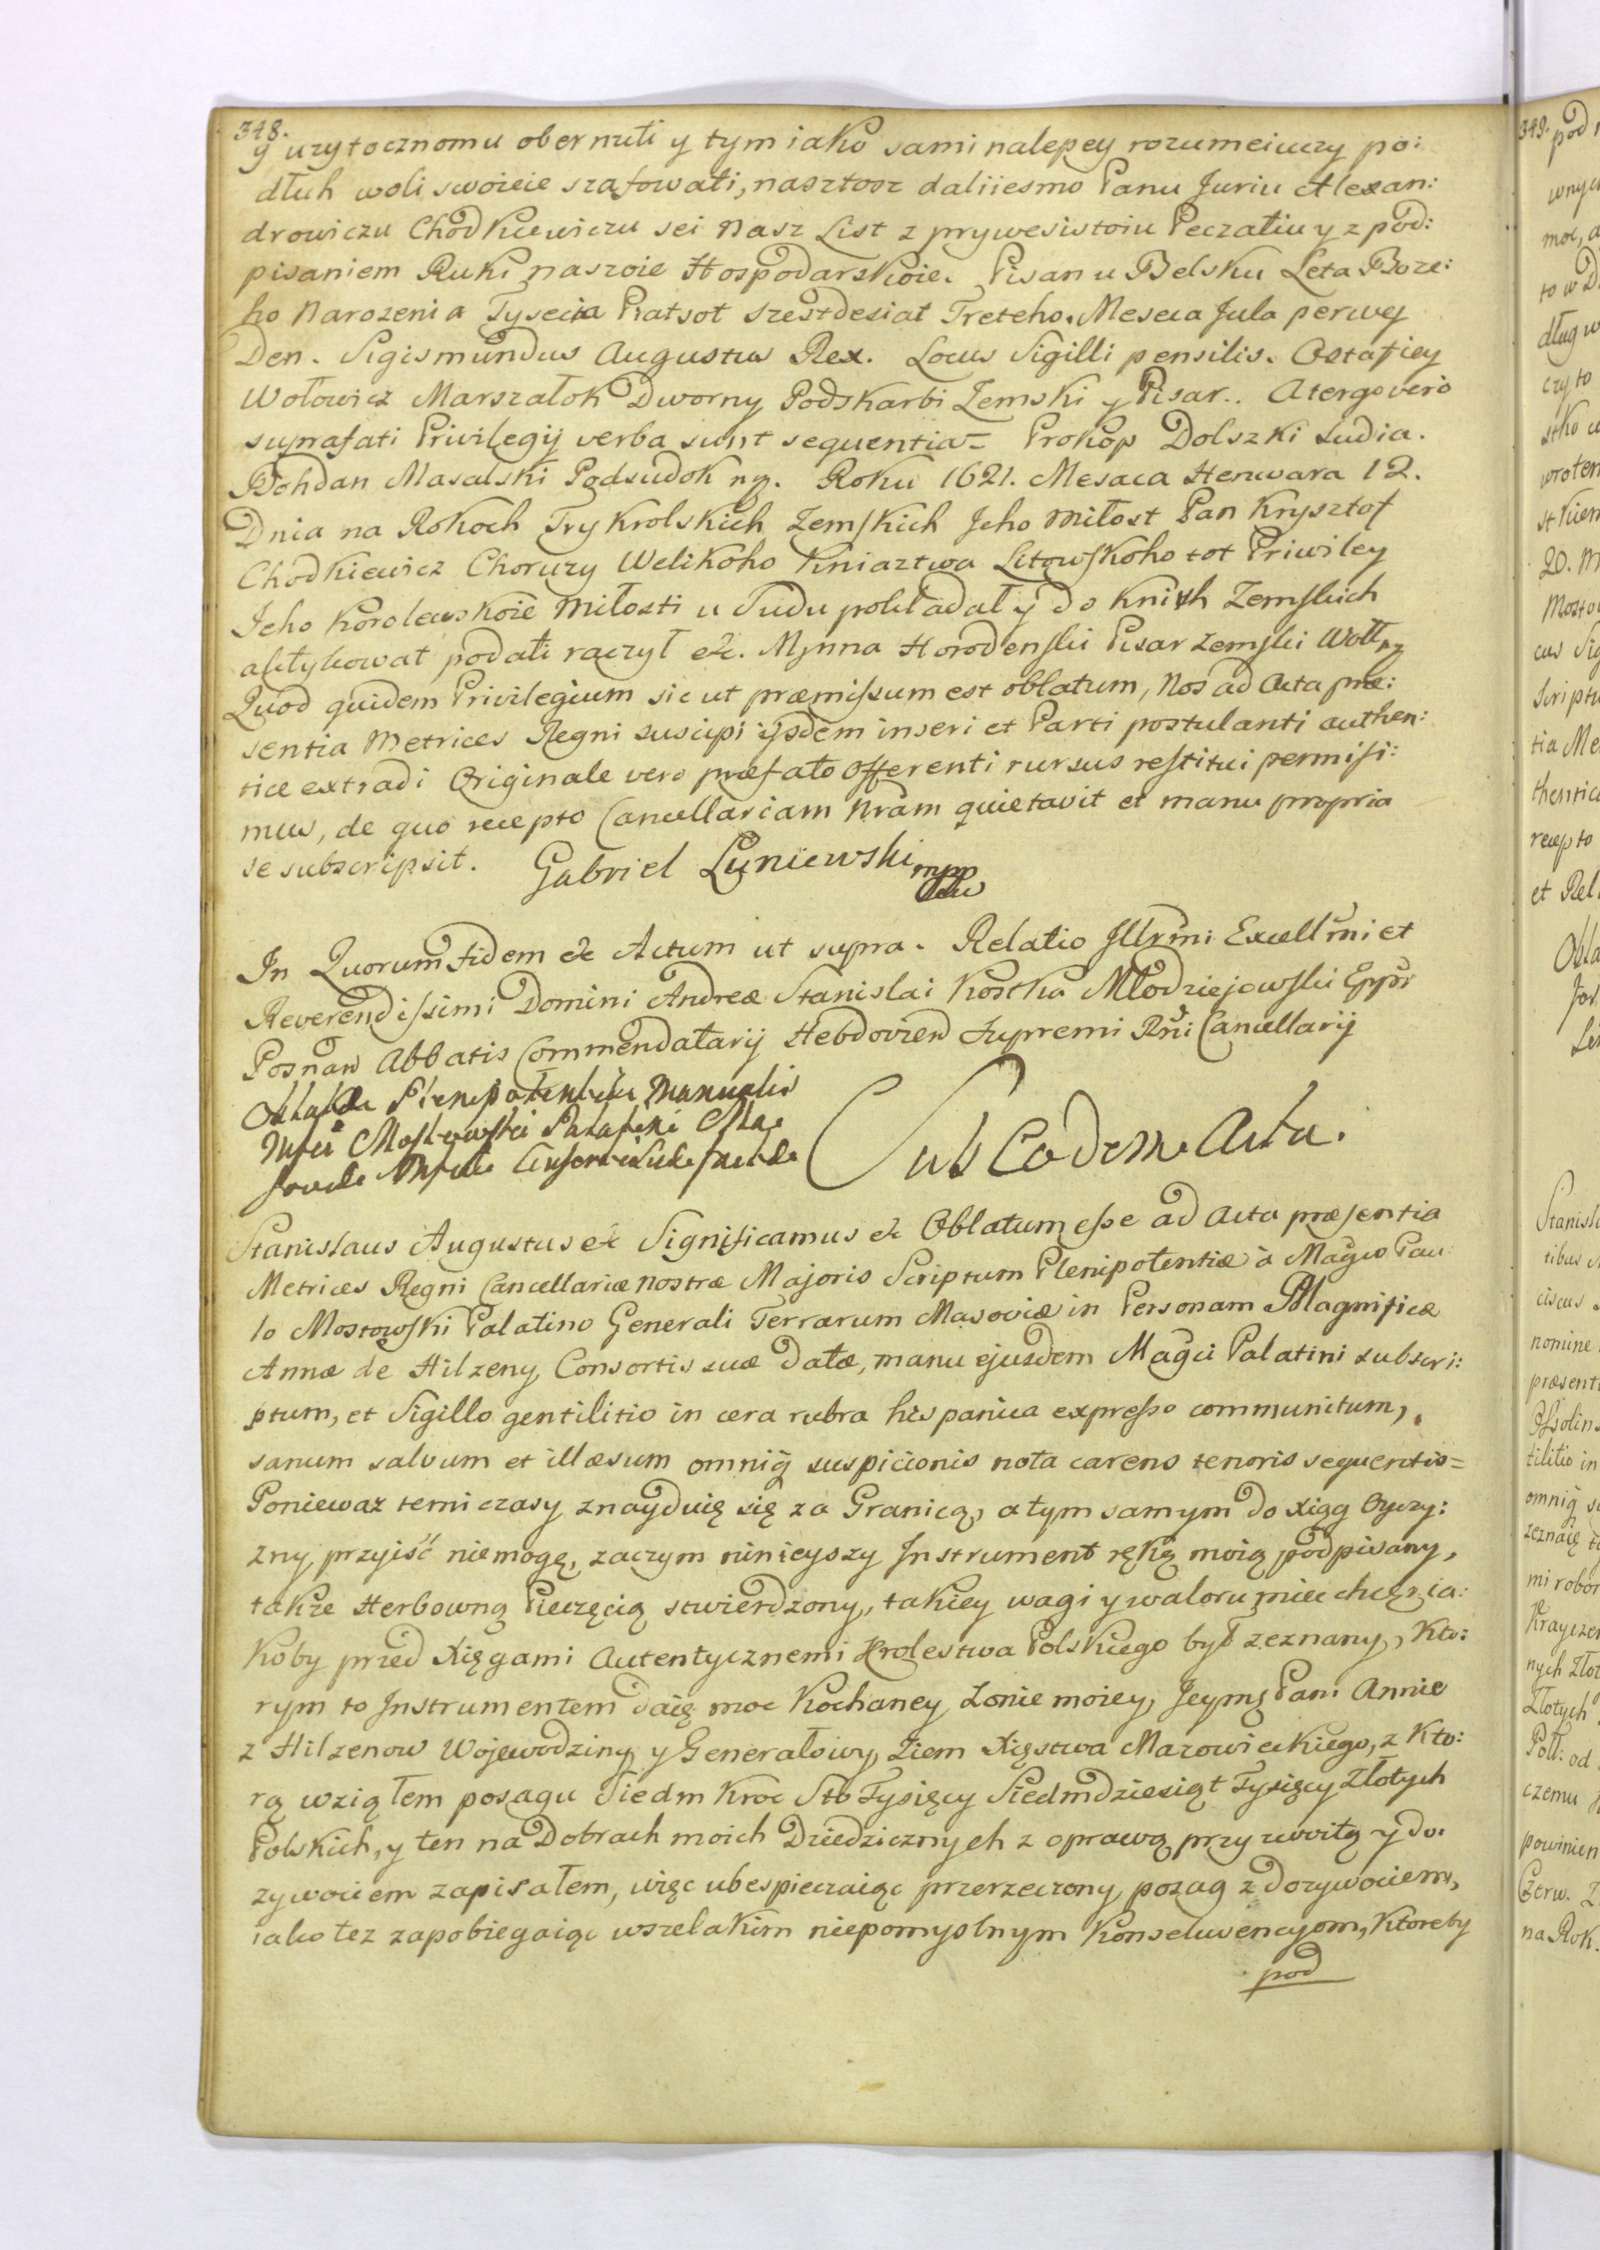 348.
y uzytocznomu obernuti y tym iako sami nalepey rozumeiuczy po:
dłuh woli swoieie szafowati, nasztosz daliiesmo Panu Juriu Alexan:
drowiczu Chodkiewiczu sei nasz List z prywesistoiu Peczatiu y z pod:
pisaniem Ruki naszoie Hospodarskoie. Pisan u Belsku Leta Boze:
ho Narozenia Tysecia Piatsot szestdesiat Treteho. Meseca Jula perwy
Den. Sigismundus Augustus Rex. Locus Sigilli pensilis. Ostafiey
Wołowicz Marszałok Dworny Podskarbi Zemski y Pisar.. Atergo vero
suprafati Privilegij verba sunt sequentia= Prokop Dolszki Sudia.
Bohdan Masalski Podsudok mp. Roku 1621. Mesaca Henwara 12.
Dnia na Rokoch Trykrolskich Zemskich Jeho Miłost Pan Krysztof
Chodkiewicz Choruzy Welikoho Kniaztwa Litowskoho tot Priwiley
Jeho Korolewskoie Miłosti u Sudu pokładał y do Knih Zemskich
aktykowat podati raczył &c. Mynna Horodenski Pisar Zemski Woł:
Quod quidem Privilegium sic ut præmissum est oblatum, Nos ad Acta præ:
sentia Metrices Regni suscipi ijsdem inseri et Parti postulanti authen:
tice extradi Originale vero præfato Offerenti rursus restitui permisi:
mus, de quo recepto Cancellariam Nram quietavit et manu propria
se subscripsit. Gabriel Łuniewski mpp
In Quorum Fidem &c Actum ut supra. Relatio Illrmi Excellmi et
Reverendissimi Domini Andreæ Stanislai Kostka Młodziejowski Eppi
Posnan Abbatis Commendatarij Hebdovien Supremi Rni Cancellarij
Oblata Plenipotentiæ Manualis
Mfci Mostowski Palatini Ma:
soviæ Mfcæ Consorti suæ factæ
Sub Eadem Acta.
Stanislaus Augustus &c Significamus &c Oblatum esse ad Acta præsentia
Metrices Regni Cancellariæ nostræ Majoris Scriptum Plenipotentiæ à Magco Pau:
lo Mostowski Palatino Generali Terrarum Masoviæ in Personam Magnificæ
Annæ de Hilzeny Consortis suæ datæ, manu ejusdem Magci Palatini subscri:
ptum, et Sigillo gentilitio in cera rubra hispanica expresso communitum,
sanum salvum et illæsum omniq suspicionis nota carens tenoris sequentis=
Poniewaz temi czasy znayduię się za Granicą, a tym samym do Xiąg Oyczy:
zny przyiść niemogę, zaczym ninieyszy Instrument ręką moią podpisany,
także Herbowną Pieczęcią stwierdzony, takiey wagi y waloru miec chcę, ia:
koby przed Xięgami Autentycznemi Krolestwa Polskiego był zeznany, Kto:
rym to Instrumentem daię moc Kochaney Zonie moiey, Jeymę Pani Annie
z Hilzenow Wojewodziny y Generałowy Ziem Xięstwa Mazowieckiego, z Kto:
rą wziąłem posagu Siedm Kroc Sto Tysięcy Siedmdziesiąt Tysięcy Złotych
Polskich, y ten na Dobrach moich Dziedzicznych z oprawą przyzwoitą y do:
zywociem zapisałem, więc ubespieczaiąc przerzeczony posag z dozywociem,
iako tez zapobiegaiąc wszelakim niepomyslnym Konsekwencyom, Ktoreby
pod